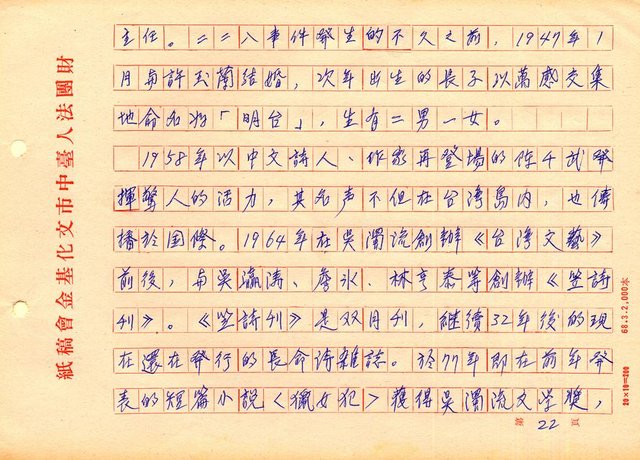 主任。二二八事件発生的不久之前，1947年1
月與許玉蘭結婚，次年出生的長子以萬感交集
地命名為「明台」，生有二男一女。
1958年以中文詩人、作家再登場的陈千武発
揮驚人的活力，其名声不但在台湾島内，也傳
播於国際。1964年在吳濁流創辦《台湾文藝》
前後，與吳瀛涛、詹冰、林亨泰等創辦《笠詩
刊》。《笠詩刊》是双月刊，継續32年後的現
在還在発行的長命诗雑誌。於77年即在前年発
表的短篇小説〈獵女犯〉獲得吳濁流文学獎，
第22頁
財團法人臺中市文化基金會稿紙
68.3.2,000本
20×10=200